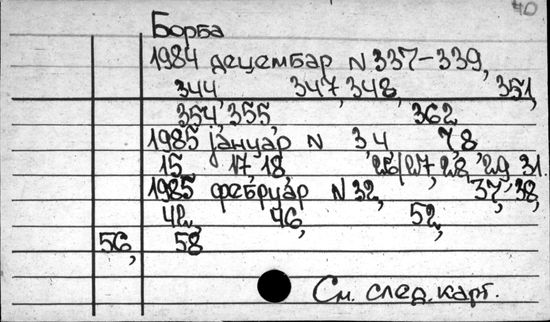 40
Борба
1984 децембар N 337-339,
344 347, 348, 351,
354, 355, 362
1985 јануар N 3,4, 7,8
15 17,18, 26/27, 28, 29, 31.
1985 фебруар N 32, 37, 38,
42, 46, 52,
56, 58
См. след. карт.